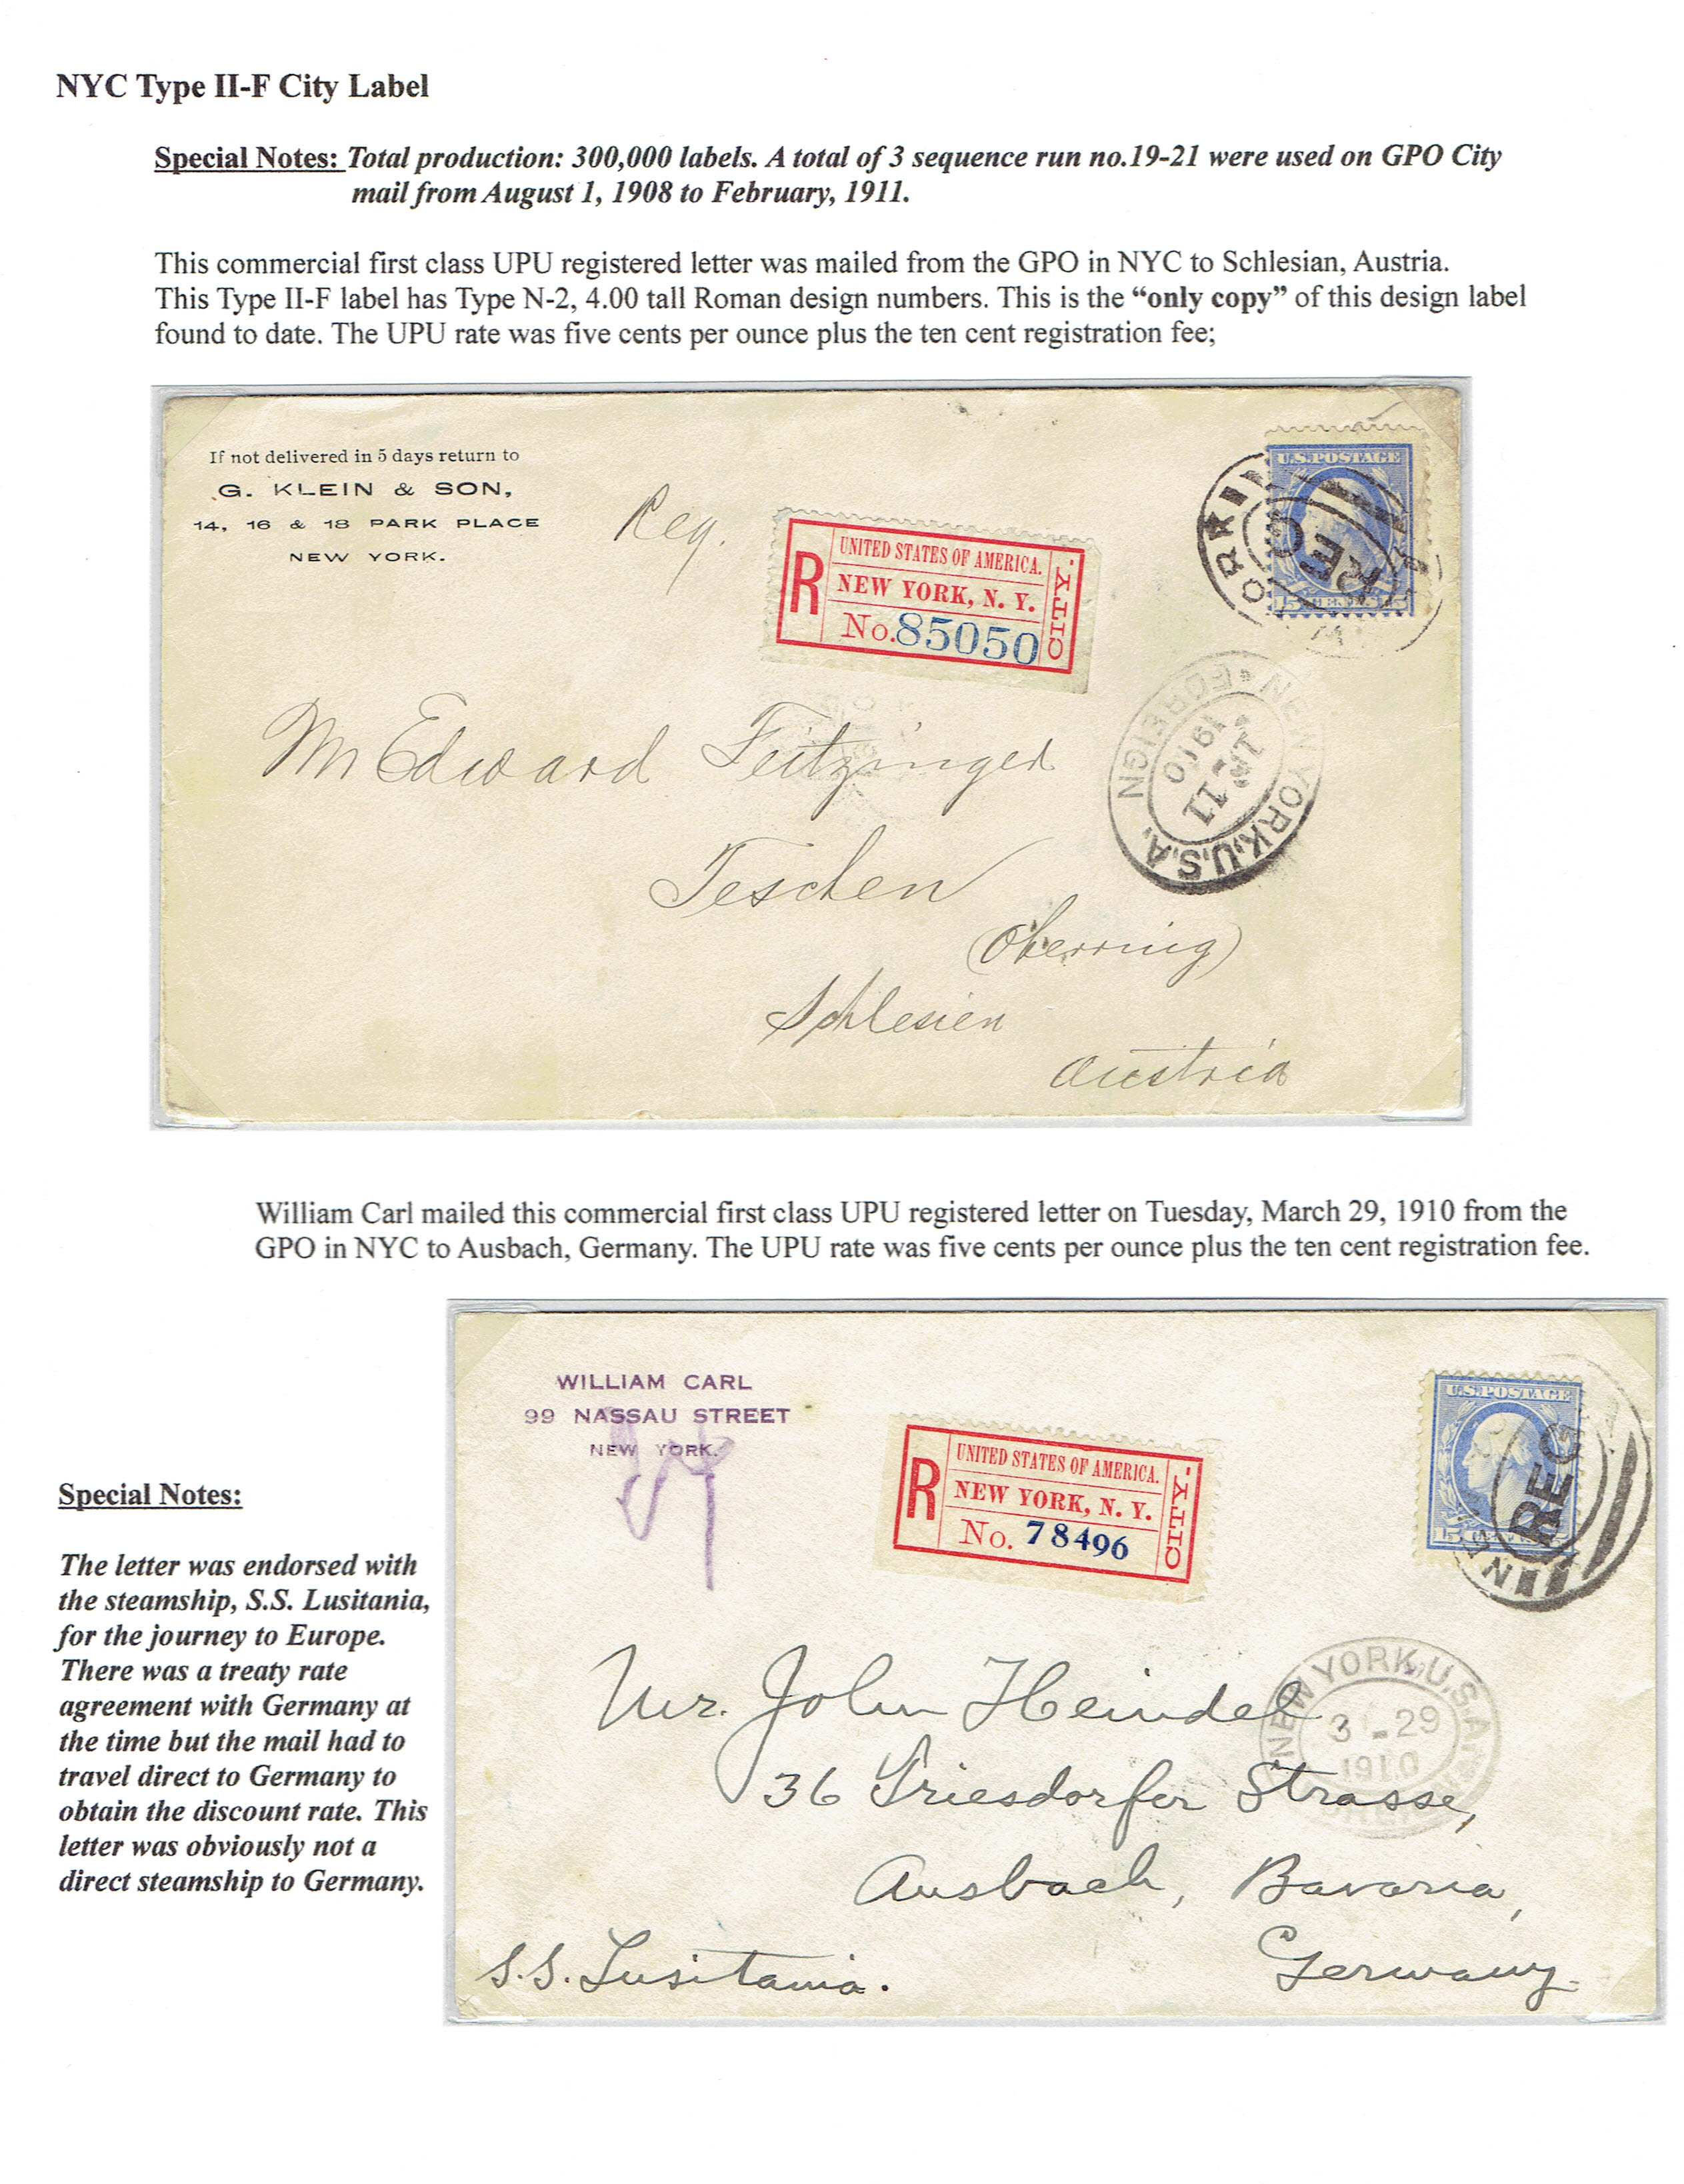 NYC Type II-F City Label
Special Notes: Total production: 300,000 labels. A total of 3 sequence run no.19-21 were used on GPO City
mail from August 1, 1908 to February, 1911.
This commercial first class UPU registered letter was mailed from the GPO in NYC to Schlesian, Austria.
This Type II-F label has Type N-2, 4.00 tall Roman design numbers. This is the “only copy” of this design label
found to date. The UPU rate was five cents per ounce plus the ten cent registration fee;
If not delivered in 5 days return to
G. KLEIN & SON,
14, 16 & 18 PARK PLACE
NEW YORK.
Reg.
R
UNITED STATES OF AMERICA.
NEW YORK, N. Y.
No. 85050
CITY.
U.S. POSTAGE
15 CENTS 15
REG
NEW YORK, U.S.A.
FOREIGN
11
1910
Mr Edward Feitzinger
Teschen
(Oberring)
Schlesien
Austria
William Carl mailed this commercial first class UPU registered letter on Tuesday, March 29, 1910 from the
GPO in NYC to Ausbach, Germany. The UPU rate was five cents per ounce plus the ten cent registration fee.
WILLIAM CARL
99 NASSAU STREET
NEW YORK.
R
UNITED STATES OF AMERICA.
NEW YORK, N. Y.
No. 78496
CITY.
U.S. POSTAGE
15 CENTS
REG
NEW YORK, U.S.A.
3-29
1910
Mr. John Heindel
36 Triesdorfer Strasse,
Ausbach, Bavaria,
Germany.
S.S. Lusitania.
Special Notes:
The letter was endorsed with
the steamship, S.S. Lusitania,
for the journey to Europe.
There was a treaty rate
agreement with Germany at
the time but the mail had to
travel direct to Germany to
obtain the discount rate. This
letter was obviously not a
direct steamship to Germany.